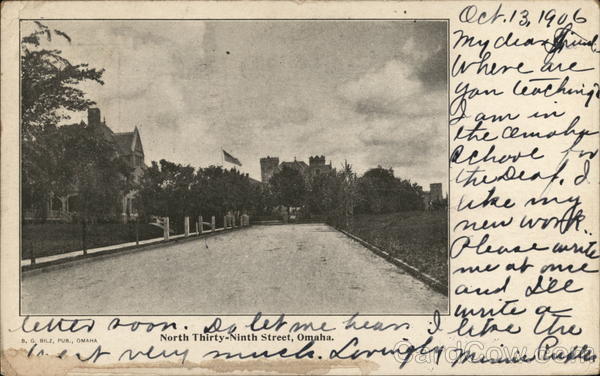 Oct. 13, 1906
My dear Friend
Where are
you teaching?
I am in
the Omaha
School for
the Deaf. I
like my
new work.
Please write
me at once
and I'll
write a
letter soon. Do let me hear. I like the
very much. Lovingly Minnie
North Thirty-Ninth Street, Omaha.
B. G. BILZ, PUB., OMAHA
CardCow.com